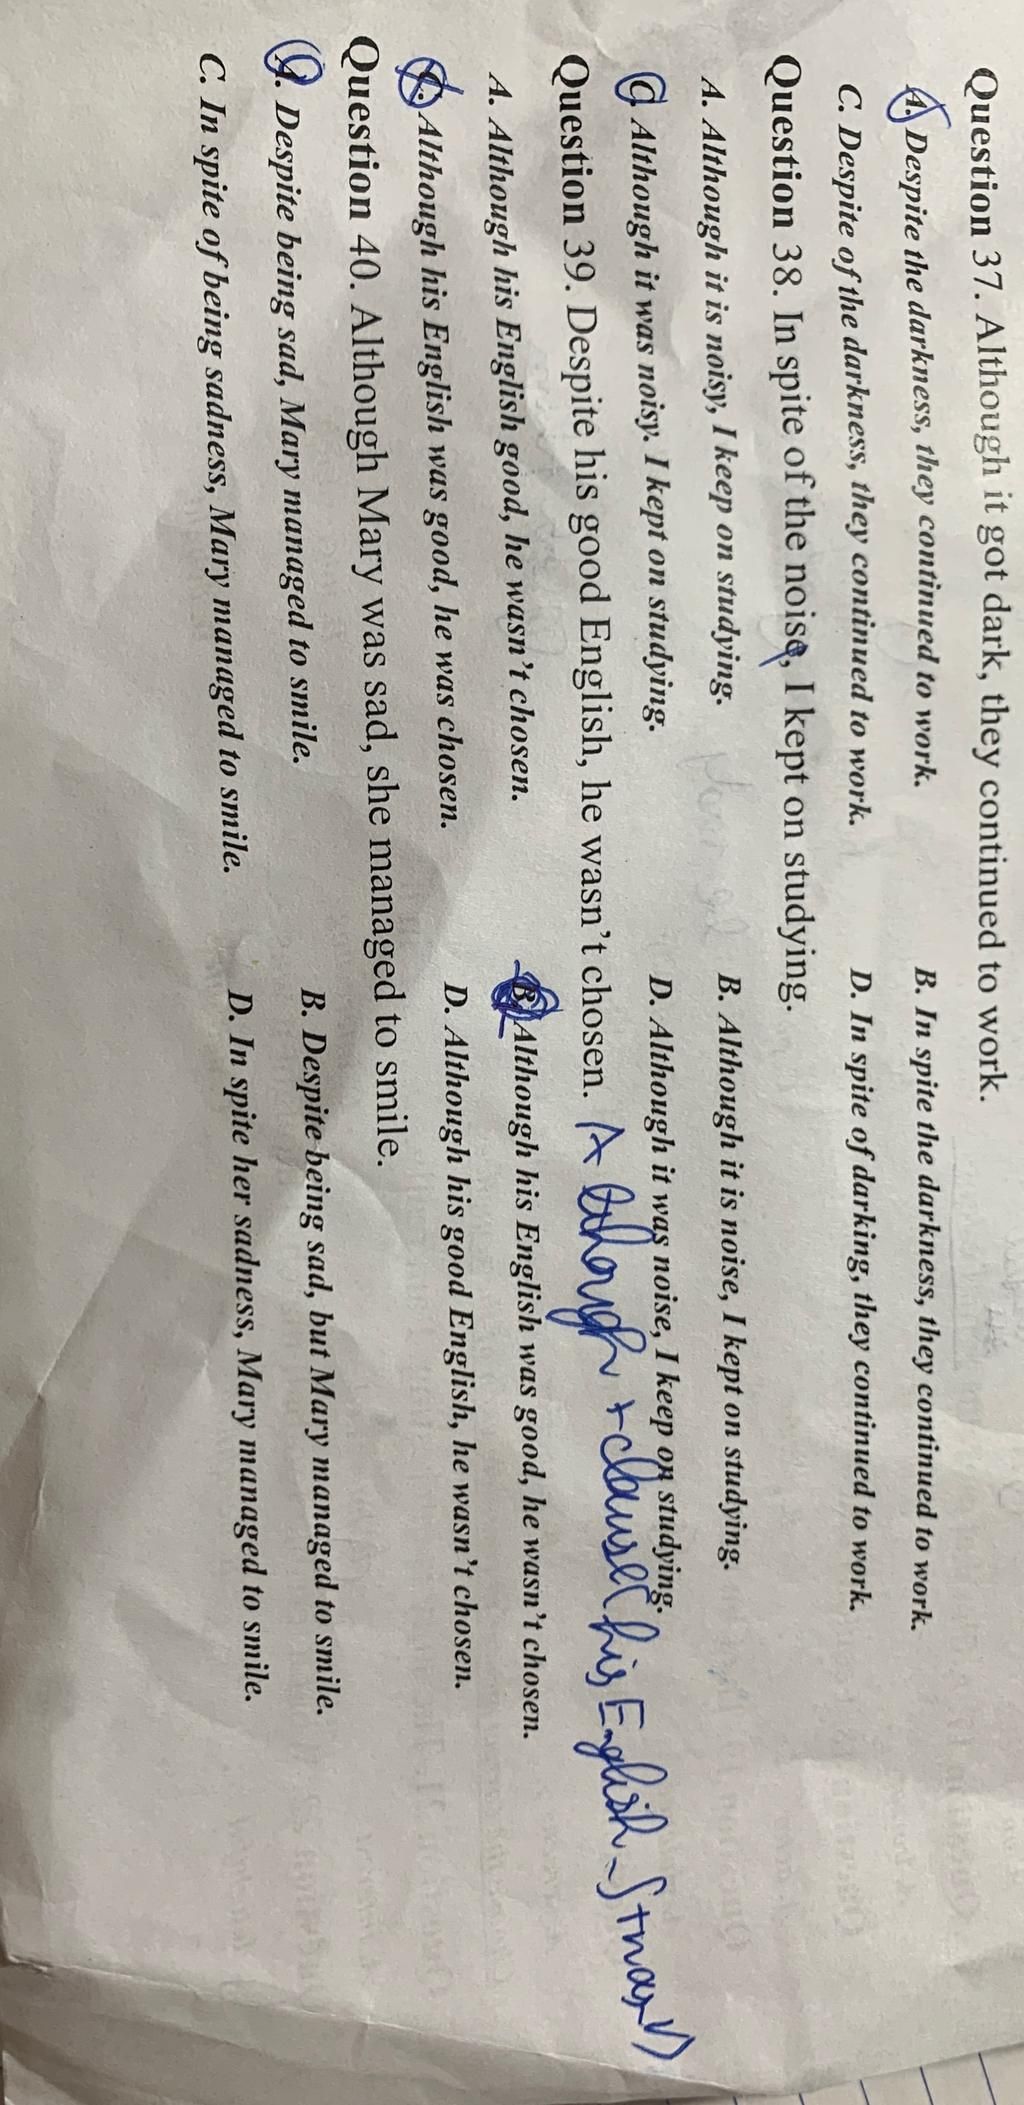 Question 37. Although it got dark, they continued to work.
A. Despite the darkness, they continued to work. B. In spite the darkness, they continued to work.
C. Despite of the darkness, they continued to work. D. In spite of darking, they continued to work.
Question 38. In spite of the noise, I kept on studying.
A. Although it is noisy, I keep on studying. B. Although it is noise, I kept on studying.
C Although it was noisy. I kept on studying. D. Although it was noise, I keep on studying.
Question 39. Despite his good English, he wasn't chosen. Although + clause (his English
A. Although his English good, he wasn't chosen. B. Although his English was good, he wasn't chosen.
C. Although his English was good, he was chosen. D. Although his good English, he wasn't chosen.
Question 40. Although Mary was sad, she managed to smile.
A. Despite being sad, Mary managed to smile. B. Despite being sad, but Mary managed to smile.
C. In spite of being sadness, Mary managed to smile. D. In spite her sadness, Mary managed to smile.